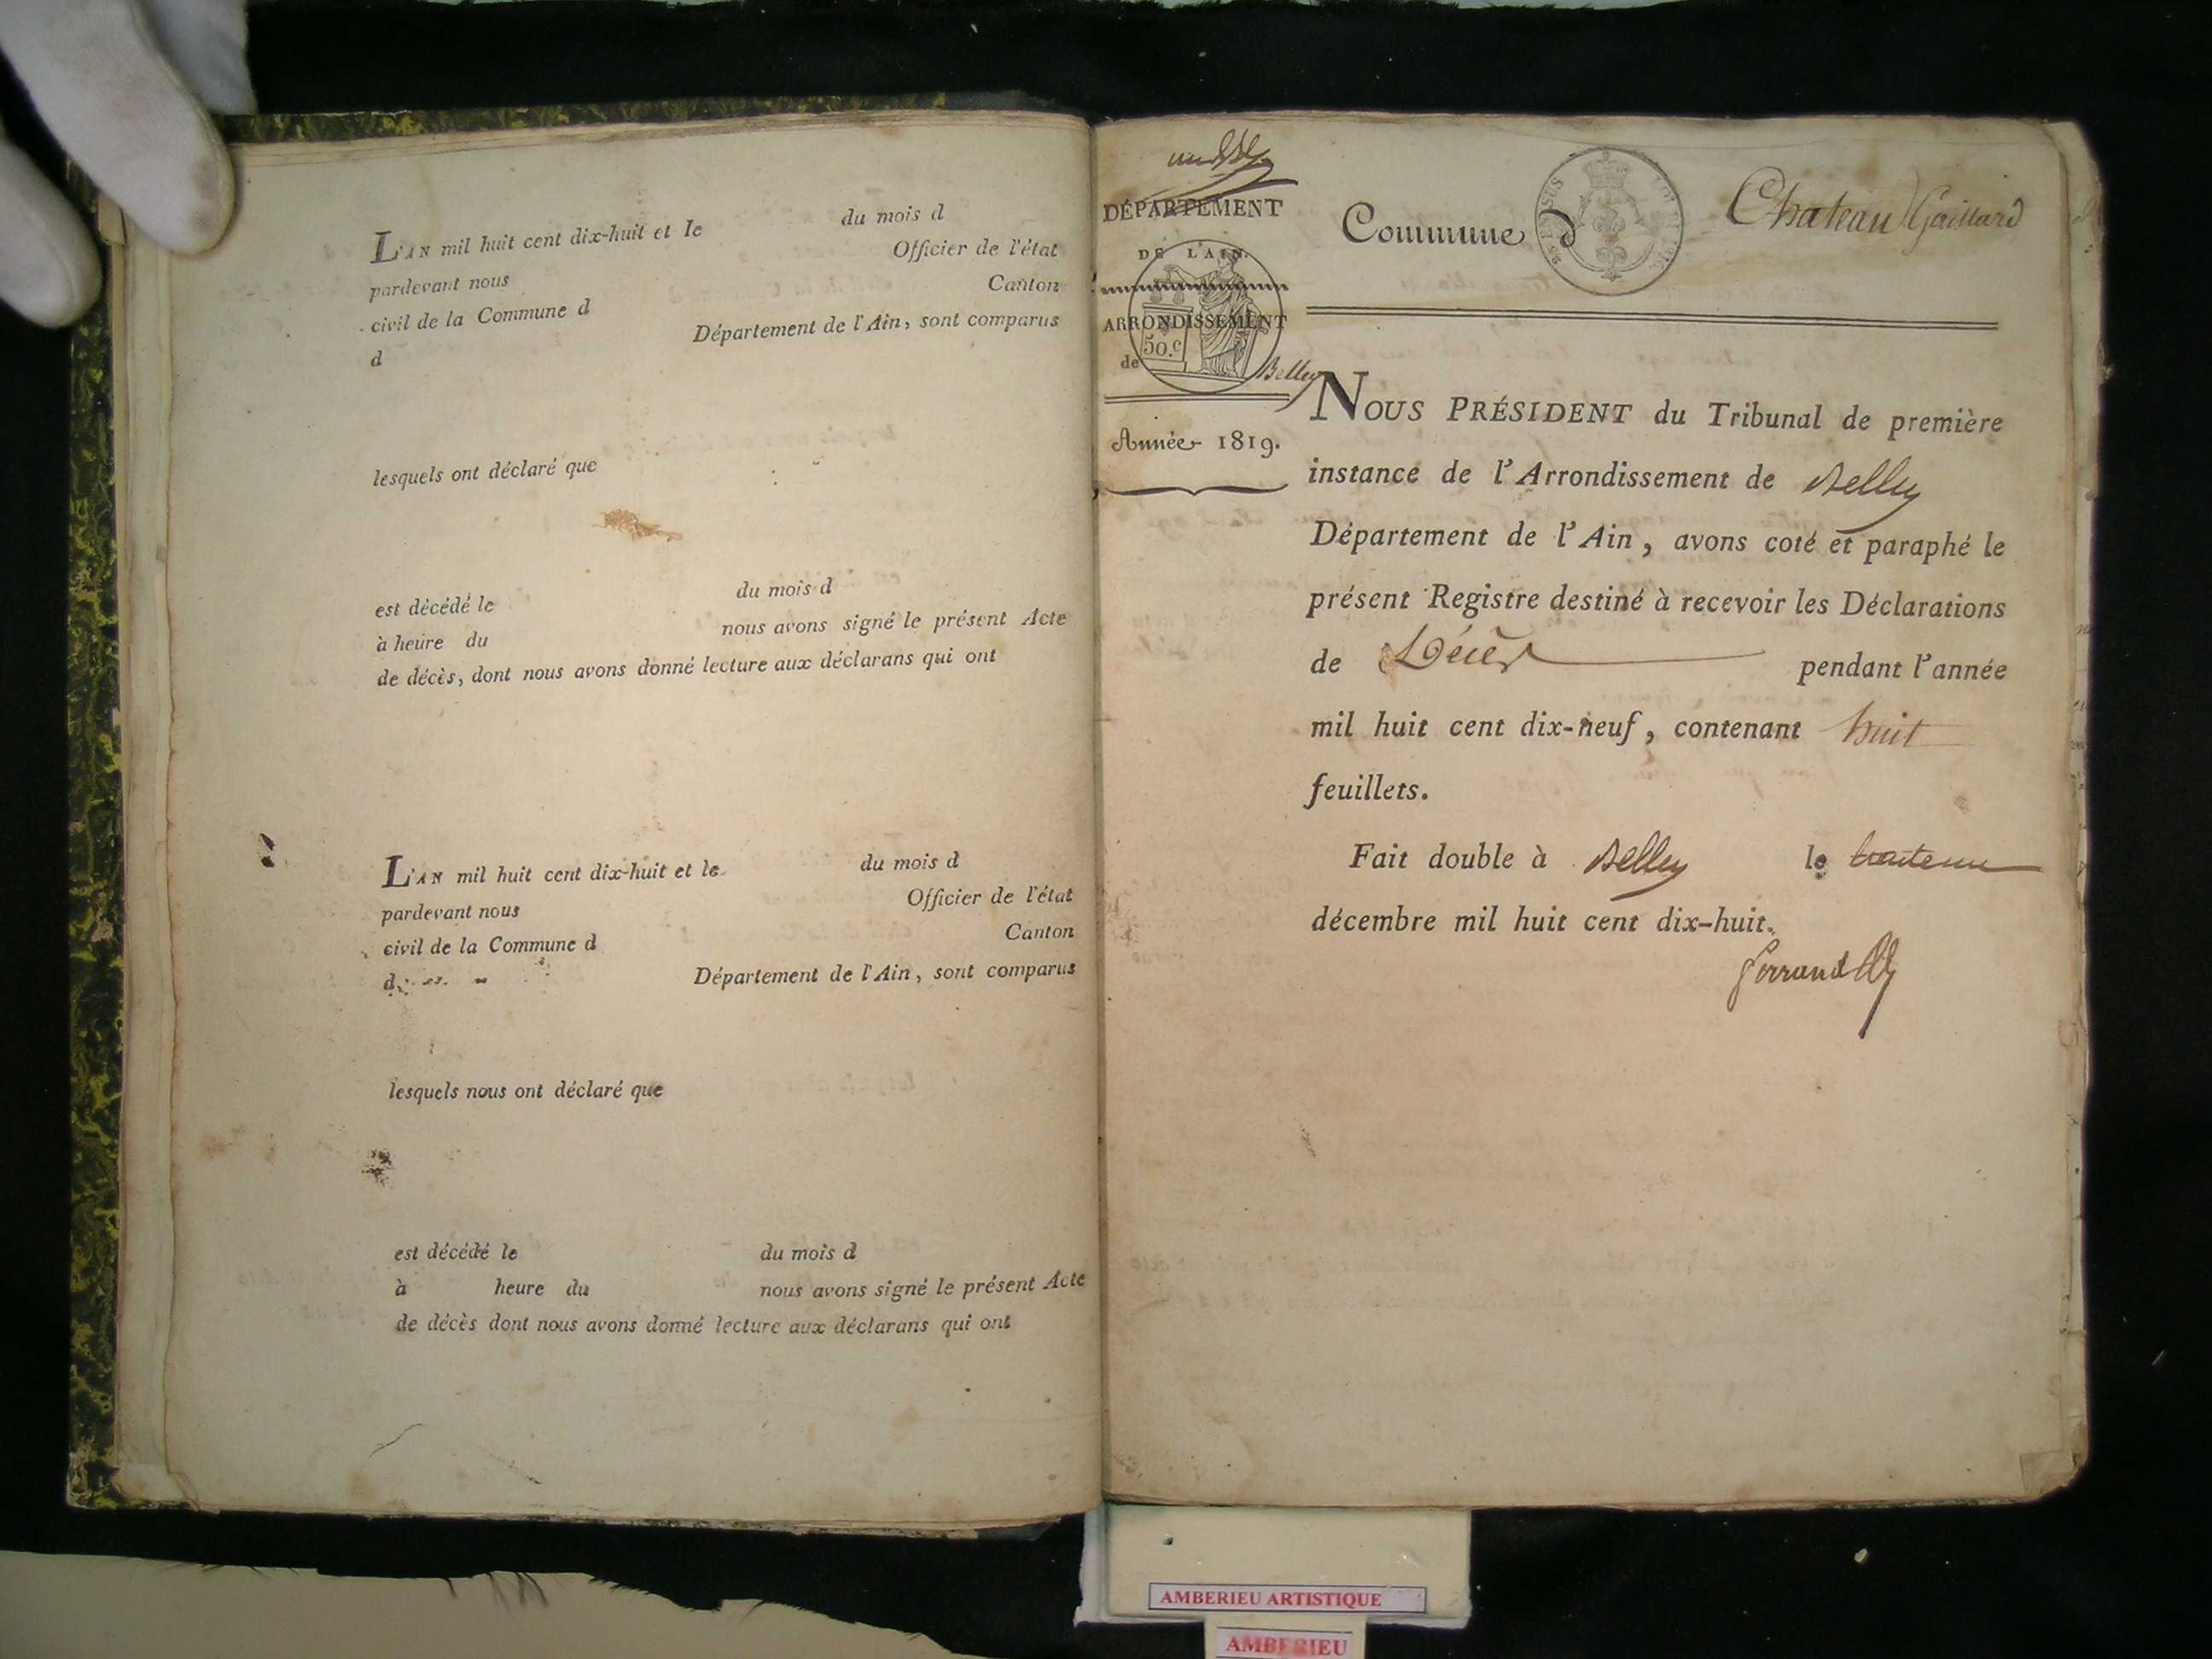 L'AN mil huit cent dix-huit et le du mois d
pardevant nous Officier de l'état
civil de la Commune d Canton
d Département de l'Ain, sont comparus
lesquels ont déclaré que
est décédé le du mois d
à heure du nous avons signé le présent Acte
de décès, dont nous avons donné lecture aux déclarans qui ont
L'AN mil huit cent dix-huit et le du mois d
pardevant nous Officier de l'état
civil de la Commune d Canton
d Département de l'Ain, sont comparus
lesquels nous ont déclaré que
est décédé le du mois d
à heure du nous avons signé le présent Acte
de décès dont nous avons donné lecture aux déclarans qui ont
DÉPARTEMENT
DE L'AIN.
ARRONDISSEMENT
50.c
de Belley
Année 1819.
Commune d Chateau Gaillard
NOUS PRÉSIDENT du Tribunal de première
instance de l'Arrondissement de Belley
Département de l'Ain, avons coté et paraphé le
présent Registre destiné à recevoir les Déclarations
de Décès pendant l'année
mil huit cent dix-neuf, contenant huit
feuillets.
Fait double à Belley le
décembre mil huit cent dix-huit.
AMBERIEU ARTISTIQUE
AMBERIEU